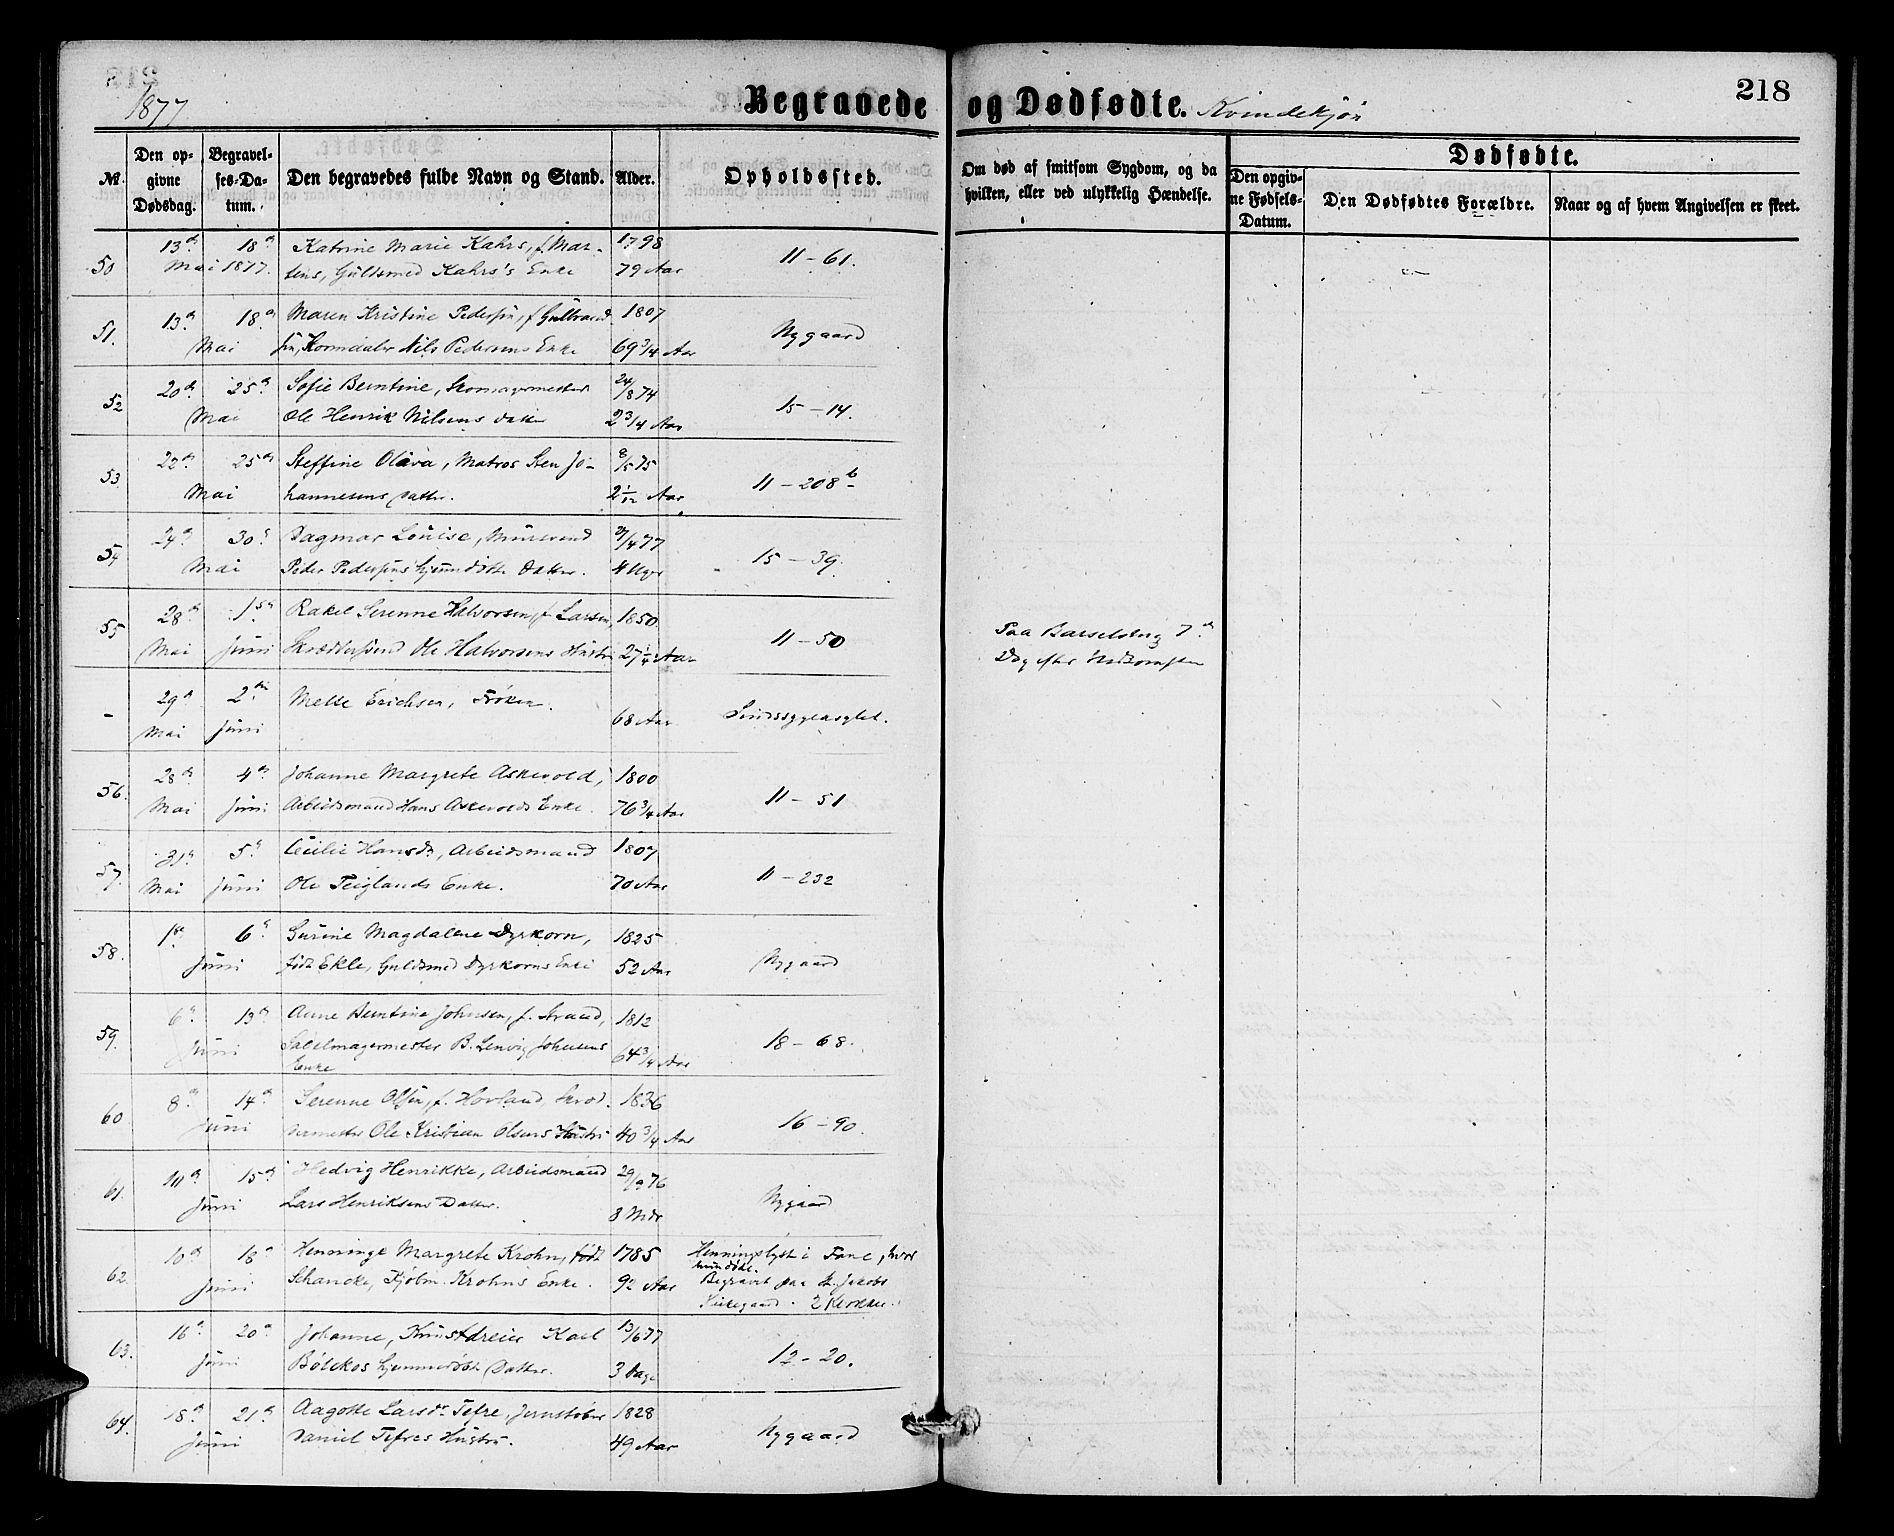 1877
Begravede og Dødfødte. Kvindekjøn
218
№.
Den op-
givne
Dødsdag.
Begravel-
ses-Da-
tum.
Den begravedes fulde Navn og Stand.
Alder.
Opholdssted.
Om død af smitsom Sygdom, og da
hvilken, eller ved ulykkelig Hændelse.
Dødfødte.
Den opgiv-
ne Fødsels-
Datum.
Den Dødfødtes Forældre.
Naar og af hvem Angivelsen er skeet.
13de 18de Katrine Marie Kahrs, f. Mar- 1798
50 Mai 1877. tens, Guldsmed Kahrs's Enke 79 Aar 11 - 61.
13de 18de Maren Kristine Pedersen, f. Gulbrand- 1807
51. Mai sen, Kornadaler Nils Pedersens Enke 69 3/4 Aar Nygaard
20de 25de Sofie Berntine, Skomagermester 24/8 74
52 Mai Ole Henrik Nilsens Datter 2 3/4 Aar 15 - 14.
22de 25de Steffine Olava, Matros Sten Jo- 8/5 75
53 Mai hannesens Datter. 2 1/12 Aar 11 - 208b
24de 30te Dagmar Louise, Mursvend 27/4 77
54 Mai Peder Pedersens hjemmedøbte Datter. 4 Uger 15 - 39.
28de 1ste Rakel Serenne Halvorsen, f. Larsen, 1850
55 Mai Juni Skrædersvend Ole Halvorsens Hustru 27 1/4 Aar 11 - 50
Paa Barselseng 7de
Dag efter Nedkomsten
29de 2den Mette Erichsen, Frøken.
- Mai Juni 68 Aar Sindssygeasylet.
28de 4de Johanne Margrete Askevold, 1800
56. Mai Juni Arbeidsmand Hans Askevolds Enke. 76 3/4 Aar 11 - 51
31te 5te Cecilie Hansdr, Arbeidsmand 1807
57. Mai Juni Ole Teiglands Enke. 70 Aar 11 - 232
1ste 6te Surine Magdalene Dyrkorn, 1825
58. Juni født Ekle, Guldsmed Dyrkorns Enke 52 Aar Nygaard
6te 13de Anne Berntine Johnsen, f. Strand, 1812
59. Juni Sadelmagermester B. Lenvig Johnsens 64 3/4 Aar 18 - 68.
Enke
8de 14de Serenne Olsen, f. Hovland, Skræd- 1836
60 Juni dermester Ole Kristian Olsens Hustru 40 3/4 Aar 16 - 90.
10de 15de Hedvig Henrikke, Arbeidsmand 29/9 76
61. Juni Lars Henriksens Datter. 8 Mdr Nygaard
10de 18de Henninge Margrete Krohn, født 1785 Henningslyst i Fane, hvor
hun døde.
62. Juni Schancke, Kjøbm. Krohns Enke. 92 Aar Begravet paa St. Jakobs
Kirkegaard. 2 Klokker.
16de 20de Johanne, Kunstdreier Karl 13/6 77
63. Juni Bølckos hjemmedøbte Datter. 3 Dage 12 - 20.
18de 21de Aagotte Larsdr Tefre, Jernstøber 1828
64. Juni Daniel Tefres Hustru. 49 Aar Nygaard